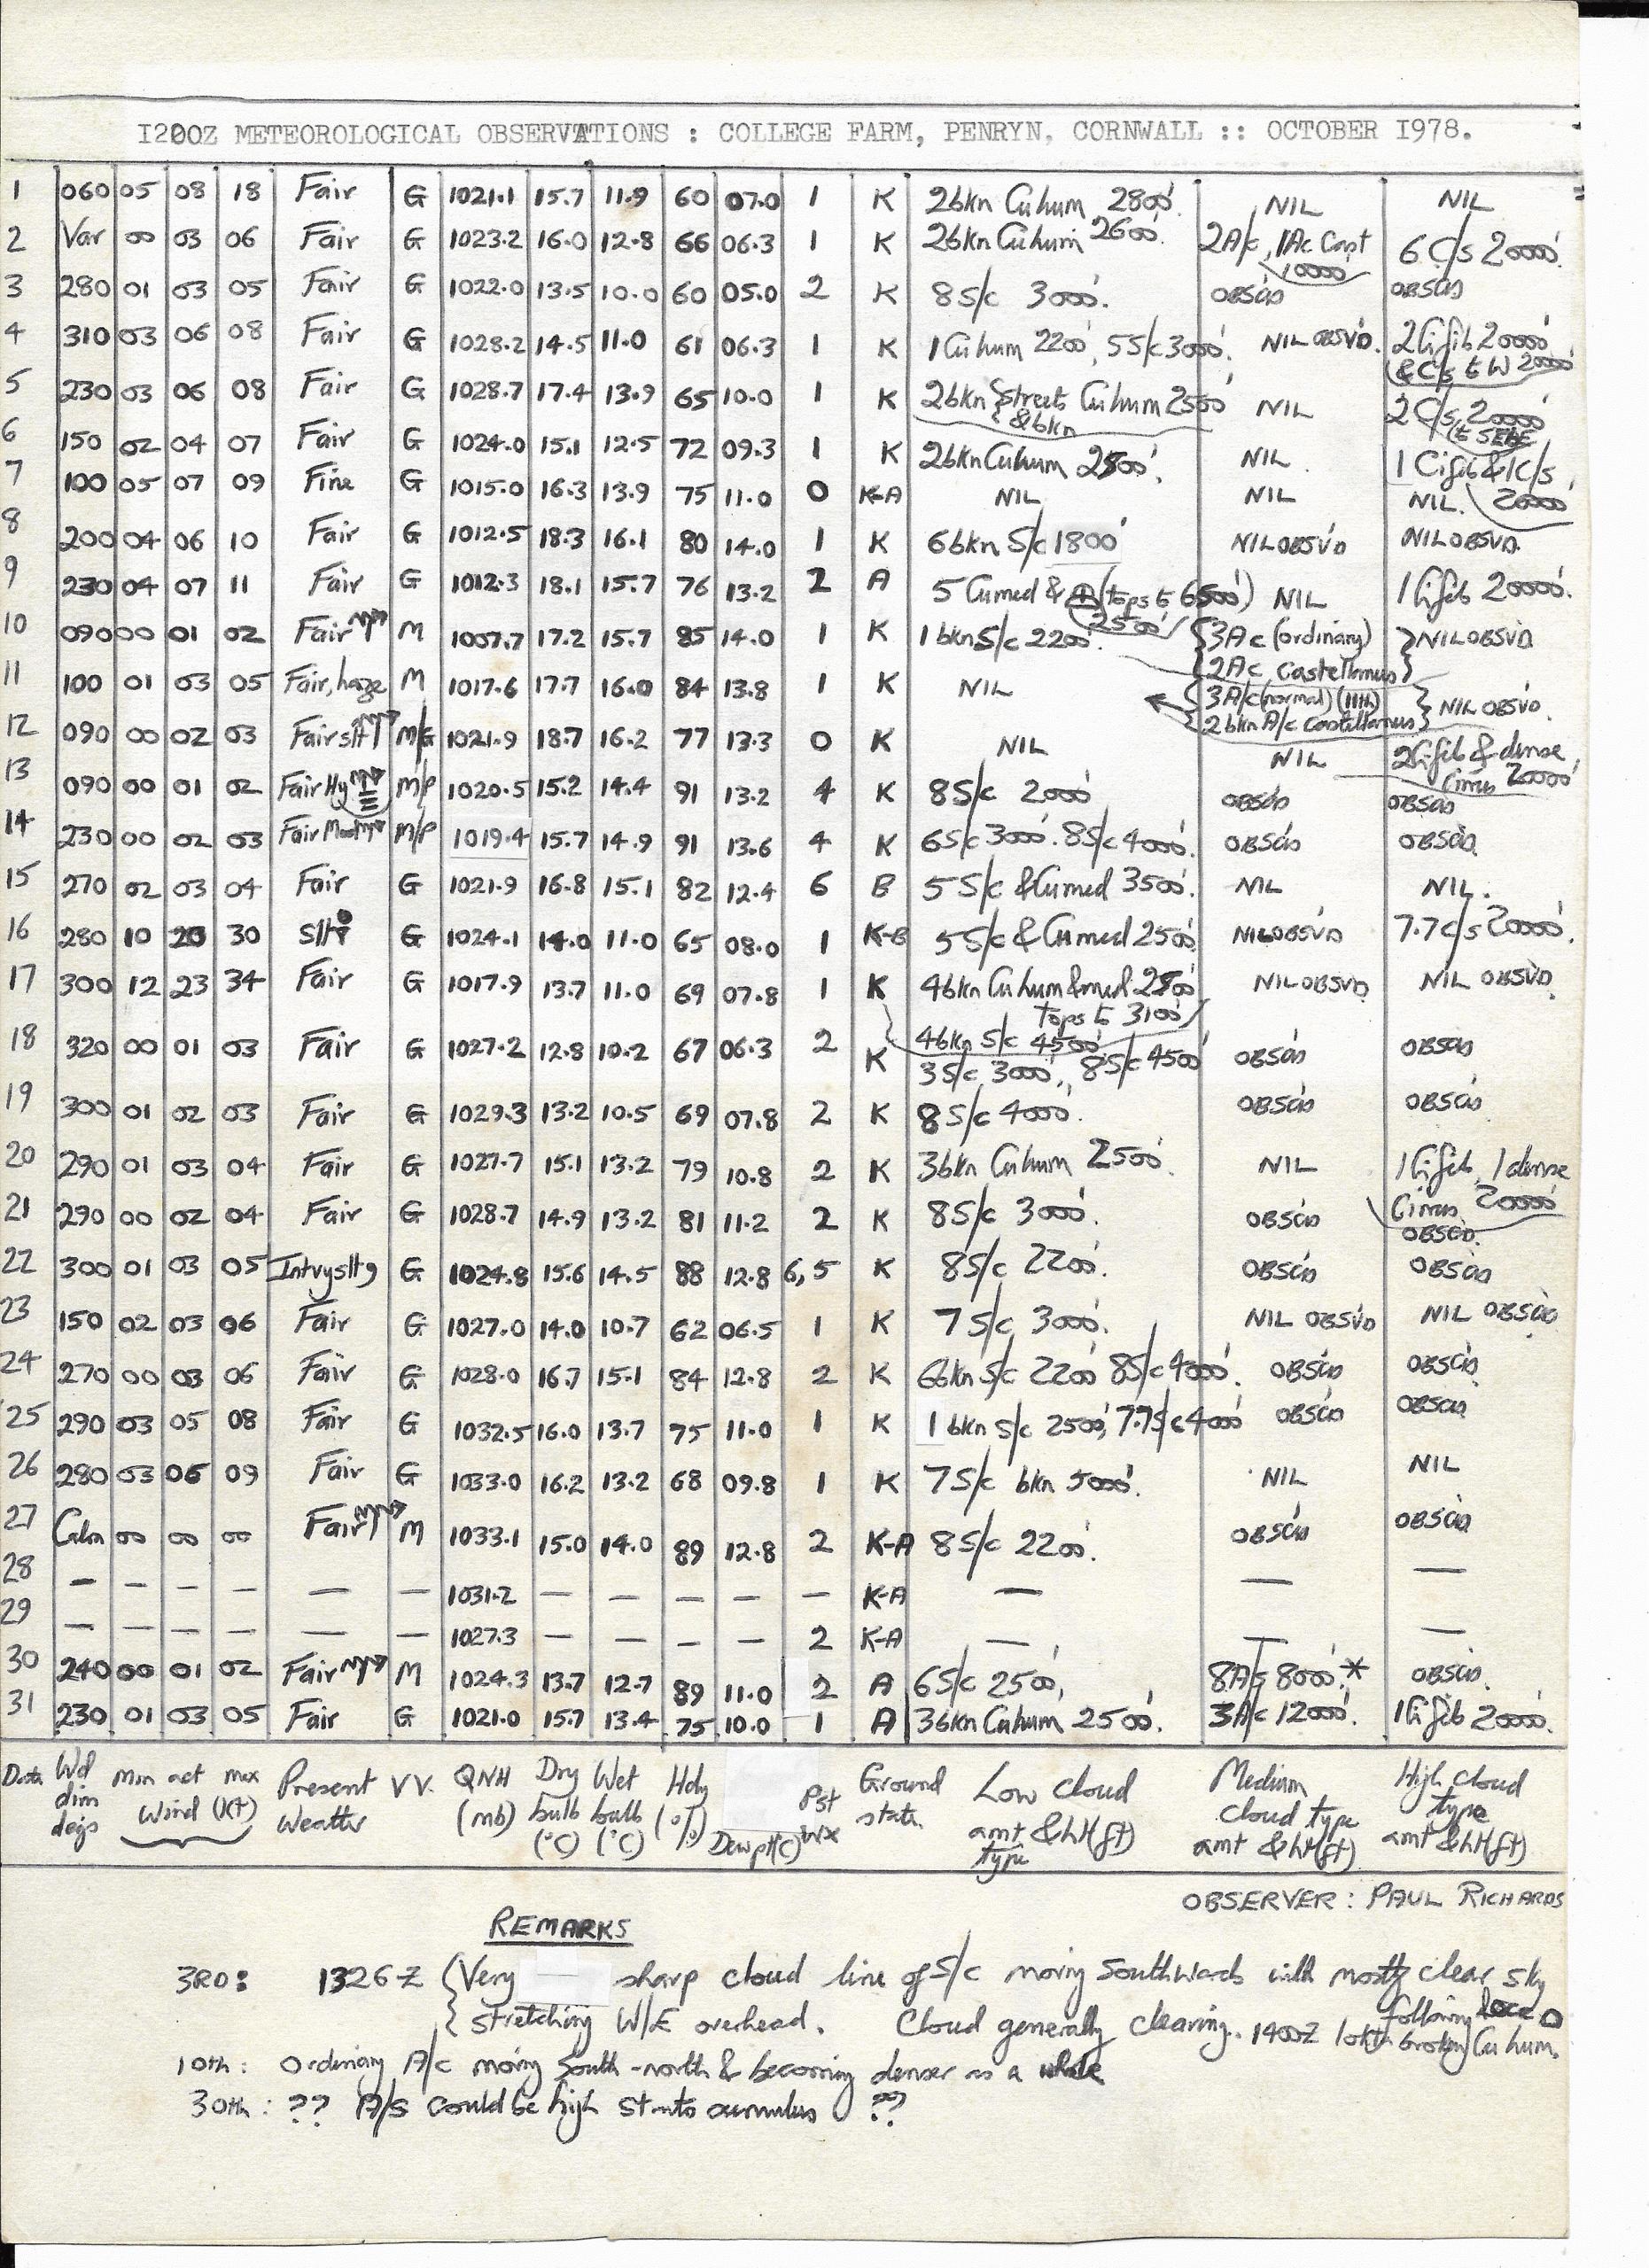 1200Z METEOROLOGICAL OBSERVATIONS : COLLEGE FARM, PENRYN, CORNWALL :: OCTOBER 1978.
1 060 05 08 18 Fair G 1021.1 15.7 11.9 60 07.0 1 K 2bkn Cu hum 2800' NIL NIL
2 Var 00 03 06 Fair G 1023.2 16.0 12.8 66 06.3 1 K 2bkn Cu hum 2600' 2A/c, 1Ac Cast 10000' 6 C/s 20000'
3 280 01 03 05 Fair G 1022.0 13.5 10.0 60 05.0 2 K 8 S/c 3000'. OBSCD OBSCD
4 310 03 06 08 Fair G 1028.2 14.5 11.0 61 06.3 1 K 1 Cu hum 2200', 5 S/c 3000'. NIL OBSVD. 2 Ci fib 20000' & C/s to W 20000'
5 230 03 06 08 Fair G 1028.7 17.4 13.9 65 10.0 1 K 2bkn Streets & bkn Cu hum 2500' NIL 2 C/s 20000' to SE
6 150 02 04 07 Fair G 1024.0 15.1 12.5 72 09.3 1 K 2bkn Cu hum 2500'. NIL. 1 Ci fib & 1C/s, 20000'
7 100 05 07 09 Fine G 1015.0 16.3 13.9 75 11.0 0 K-A NIL NIL NIL.
8 200 04 06 10 Fair G 1012.5 18.3 16.1 80 14.0 1 K 6bkn S/c 1800' NIL OBSVD NIL OBSVD.
9 230 04 07 11 Fair G 1012.3 18.1 15.7 76 13.2 2 A 5 Cu med & (tops to 6500') 2500' NIL 1 Ci fib 20000'.
10 090 00 01 02 Fair M 1007.7 17.2 15.7 85 14.0 1 K 1 bkn S/c 2200'. 3Ac (ordinary) 2Ac Castellanus NIL OBSVD
11 100 01 03 05 Fair, haze M 1017.6 17.7 16.0 84 13.8 1 K NIL 3A/c (normal) 2bkn A/c Castellanus NIL OBSVD.
12 090 00 02 03 Fair slt M/G 1021.9 18.7 16.2 77 13.3 0 K NIL NIL 2 Ci fib & dense Cirrus 20000'
13 090 00 01 02 Fair Hy M/P 1020.5 15.2 14.4 91 13.2 4 K 8 S/c 2000' OBSCD OBSCD
14 230 00 02 03 Fair Mod M/P 1019.4 15.7 14.9 91 13.6 4 K 6 S/c 3000'. 8 S/c 4000'. OBSCD OBSCD
15 270 02 03 04 Fair G 1021.9 16.8 15.1 82 12.4 6 B 5 S/c & Cu med 3500'. NIL NIL.
16 280 10 20 30 Slt G 1024.1 14.0 11.0 65 08.0 1 K-B 5 S/c & Cu med 2500' NIL OBSVD 7.7 C/s 20000'.
17 300 12 23 34 Fair G 1017.9 13.7 11.0 69 07.8 1 K 4bkn Cu hum & med 2500' tops to 3100' 4bkn S/c 4500' NIL OBSVD NIL OBSVD
18 320 00 01 03 Fair G 1027.2 12.8 10.2 67 06.3 2 K 3 S/c 3000', 8 S/c 4500' OBSCD OBSCD
19 300 01 02 03 Fair G 1029.3 13.2 10.5 69 07.8 2 K 8 S/c 4000'. OBSCD OBSCD
20 290 01 03 04 Fair G 1027.7 15.1 13.2 79 10.8 2 K 3bkn Cu hum 2500'. NIL 1 Ci fib, 1 dense Cirrus 20000'
21 290 00 02 04 Fair G 1028.7 14.9 13.2 81 11.2 2 K 8 S/c 3000'. OBSCD OBSCD.
22 300 01 03 05 Intvyslt G 1024.8 15.6 14.5 88 12.8 6,5 K 8 S/c 2200'. OBSCD OBSCD
23 150 02 03 06 Fair G 1027.0 14.0 10.7 62 06.5 1 K 7 S/c 3000'. NIL OBSVD NIL OBSCD
24 270 00 03 06 Fair G 1028.0 16.7 15.1 84 12.8 2 K 6bkn S/c 2200' 8 S/c 4000'. OBSCD OBSCD
25 290 03 05 08 Fair G 1032.5 16.0 13.7 75 11.0 1 K 1 bkn S/c 2500', 7.7 S/c 4000' OBSCD OBSCD
26 280 03 06 09 Fair G 1033.0 16.2 13.2 68 09.8 1 K 7 S/c bkn 5000'. NIL NIL
27 Calm 00 00 00 Fair M 1033.1 15.0 14.0 89 12.8 2 K-A 8 S/c 2200'. OBSCD OBSCD
28 — — — — — — 1031.2 — — — — — K-A — — —
29 — — — — — — 1027.3 — — — — 2 K-A — — —
30 240 00 01 02 Fair M 1024.3 13.7 12.7 89 11.0 2 A 6 S/c 2500', 8A/s 8000'.* OBSCD.
31 230 01 03 05 Fair G 1021.0 15.7 13.4 75 10.0 1 A 3bkn Cu hum 2500'. 3A/c 12000'. 1 Ci fib 20000'.
Date Wd dirn degs min act max Wind (Kt) Present Weather VV. QNH (mb) Dry bulb (°C) Wet bulb (°C) Hdy (%) Dew pt(°C) Pst Wx Ground state Low Cloud amt & ht(ft) type Medium Cloud type amt & ht(ft) High Cloud type amt & ht(ft)
OBSERVER : PAUL RICHARDS
REMARKS
3RD: 1326Z (Very sharp cloud line of S/c moving Southwards with mostly clear sky following
stretching W/E overhead. Cloud generally clearing. 1400Z broken Cu hum.
10th: Ordinary A/c moving South-north & becoming denser as a whole
30th: ?? A/s could be high strato cumulus ??